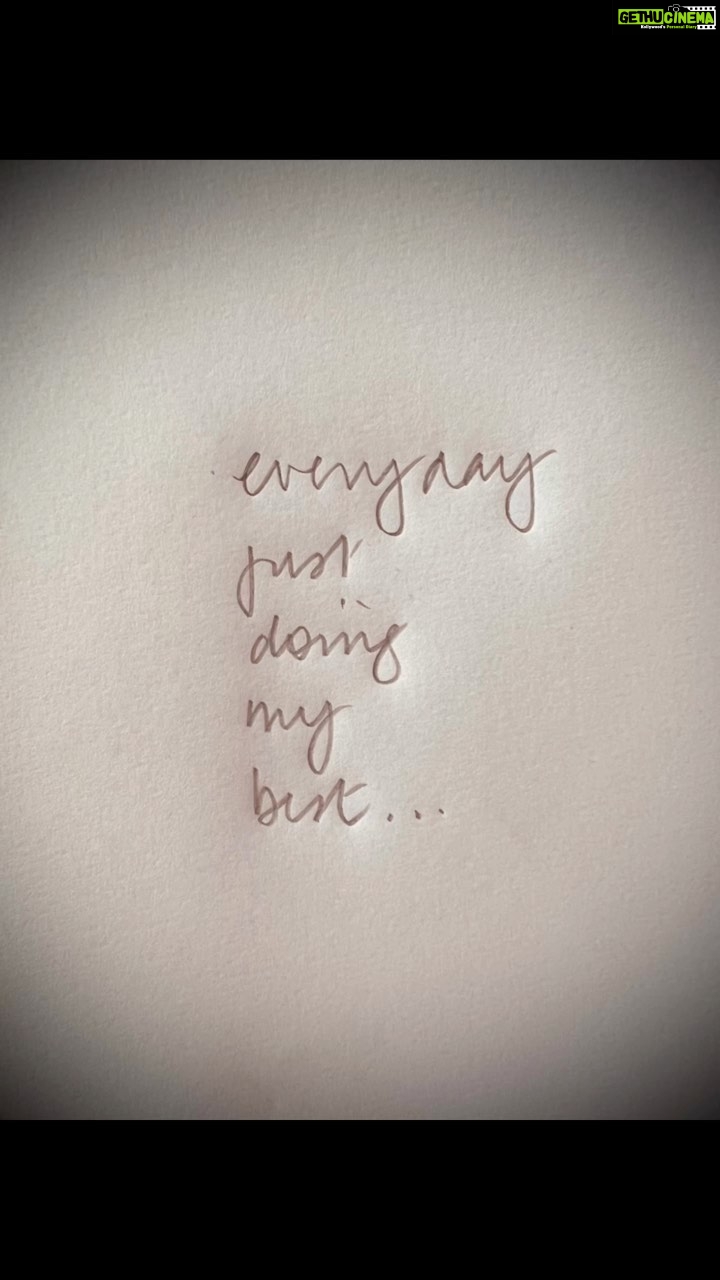 GETHUCINEMA
Kollywood's Personal Diary
everyday
just
doing
my
best...